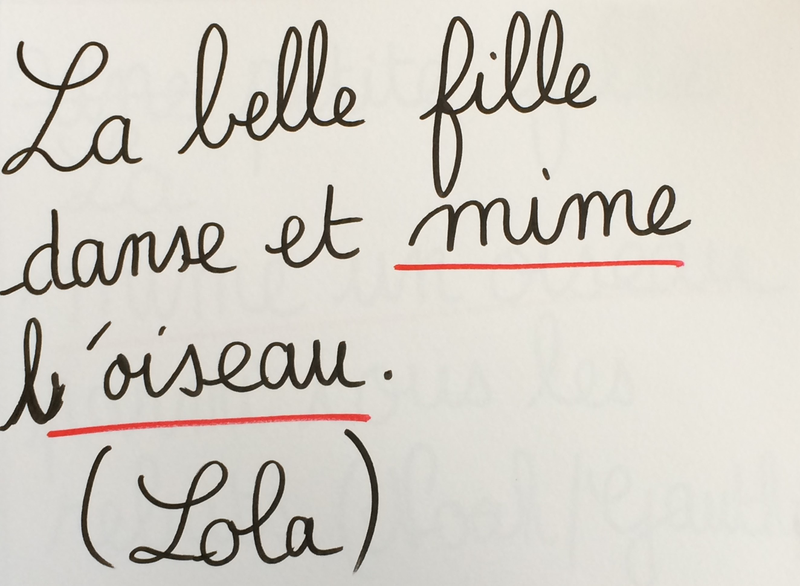 La belle fille
danse et mime
l'oiseau.
(Lola)